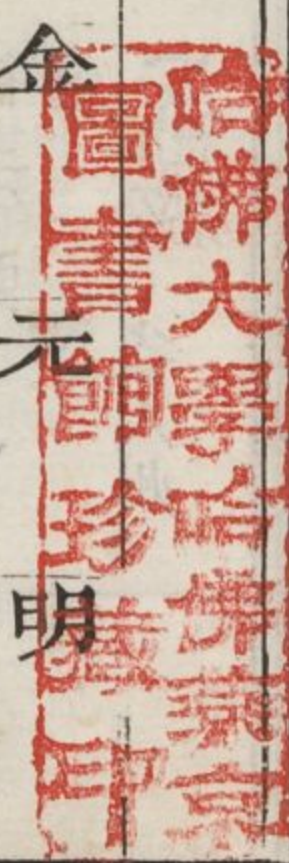 哈佛大學哈佛燕京
圖書館珍藏印
金元明